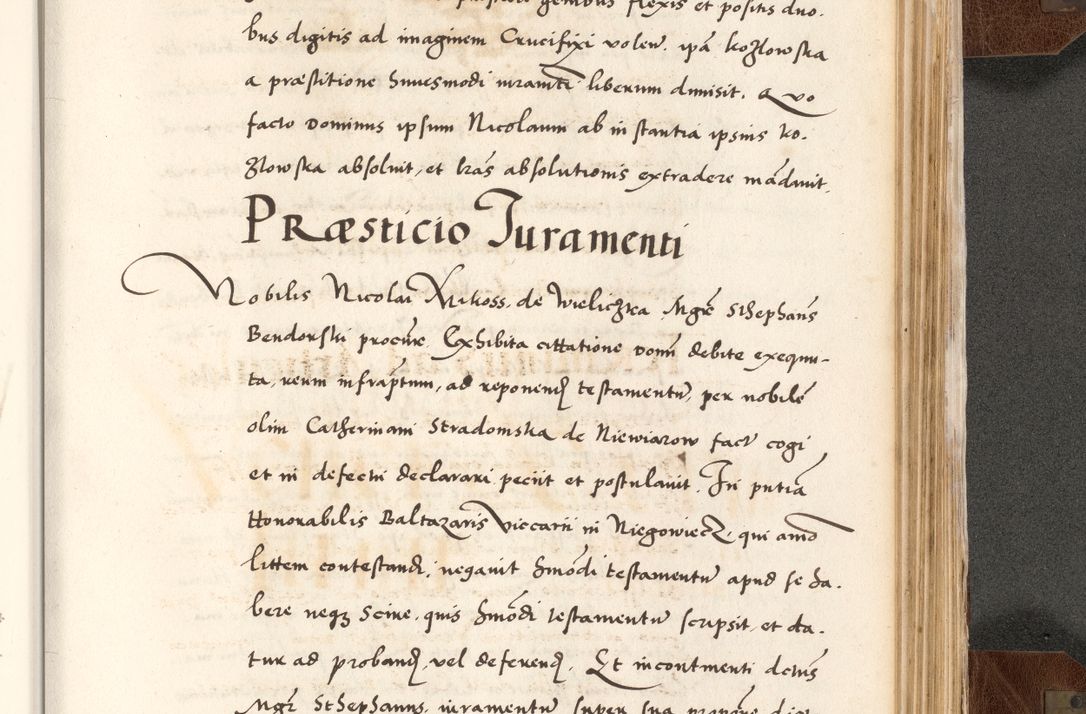 genibus flexis et positis duo.
bus digitis ad imaginem Crucifixi volen. ipā koẑlowska
a præstitione huiusmodi iuramti liberum dimisit. Quo
facto Dominus ipsum Nicolaum ab instantia ipsius ko.
ẑlowska absoluit, et lrās absolutionis extradere mādauit.
Præsticio Juramenti
Nobilis Nicolai de wieliczka Mgr̄ Sthephans
Bendorski procūr. Exhibita cittatione Domī debite exequu-
ta, reum infraptum, ad reponend testamentū, per nobilē
olim Catherinam Stradomska de Niewiarow fact cogi
et in defectu declarari peciit et postulauit. In pntia
Honorabilis Baltazaris viccarii in Niegowiecz, qui animo
littem contestandi, negauit hmōdi testamentū apud se ha.
bere neq3 scire, quis hmōdi testamentū scripsit, et da.
tur ad proband, vel deferend. Et incontinenti dctus
Mgr Sthephanus, iuramentū super sua